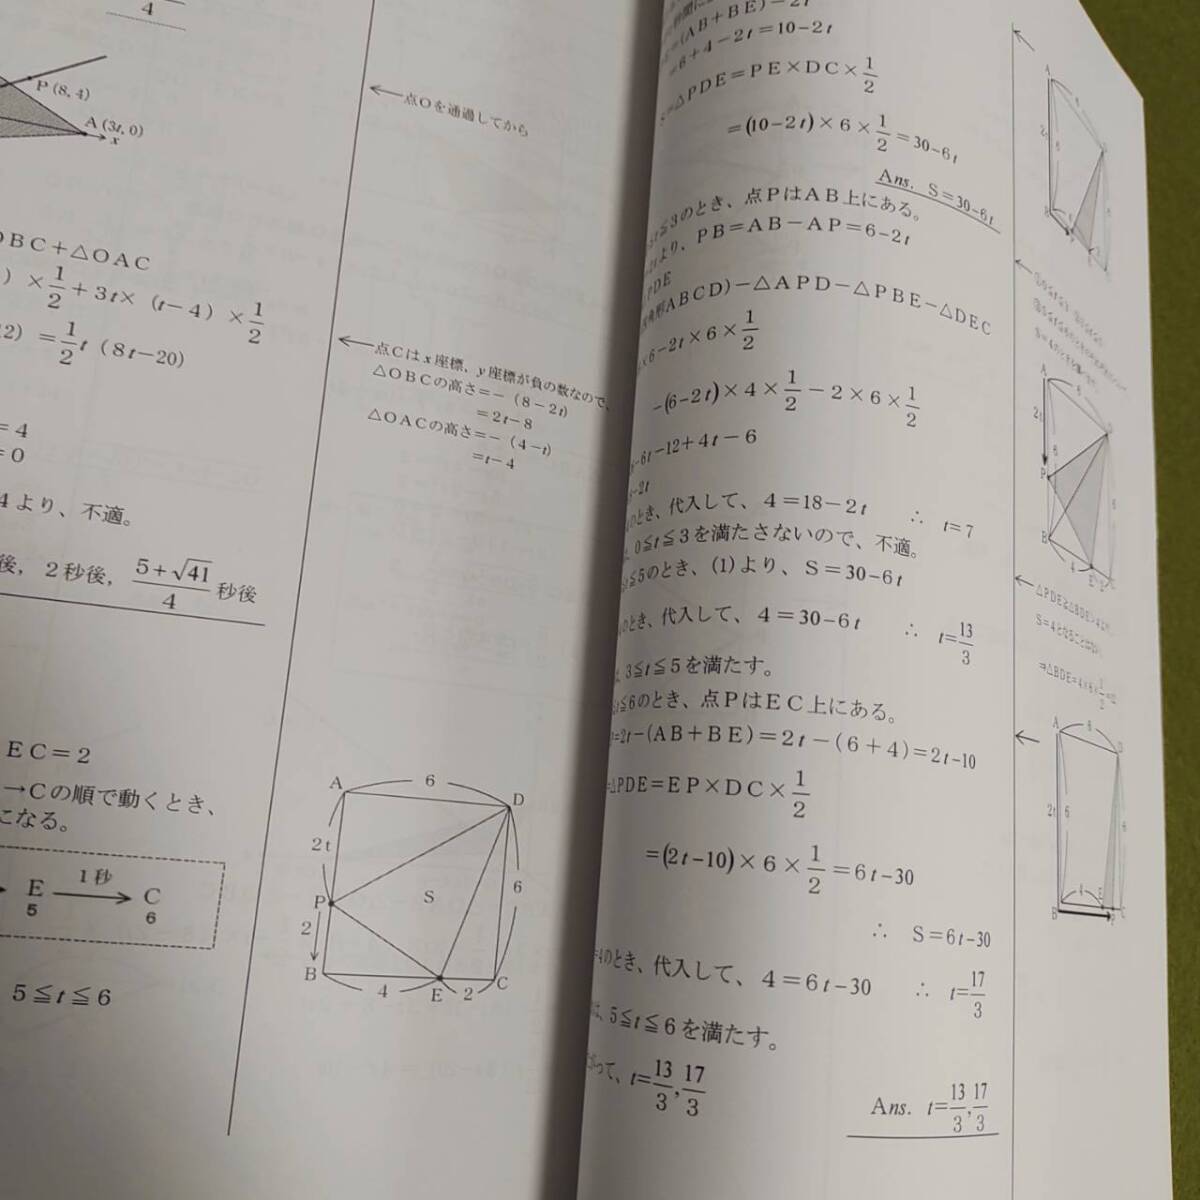 4
P(8, 4)
A(3t, 0)
x
←点Oを通過してから
OBC+△OAC
)×1/2+3t×(t−4)×1/2
)=1/2t(8t−20)
=4
=0
4より、不適。
後, 2秒後, 5+√41/4秒後
←点Cはx座標、y座標が負の数なので、
△OBCの高さ=−(8−2t)
=2t−8
△OACの高さ=−(4−t)
=t−4
EC=2
→Cの順で動くとき、
になる。
E 1秒 C
5 6
5≦t≦6
A 6 D
2t
6
P S
2
B 4 E 2 C
(AB+BE)−2t
=6+4−2t=10−2t
△PDE=PE×DC×1/2
=(10−2t)×6×1/2=30−6t
Ans. S=30−6t
≦3のとき、点PはAB上にある。
より、PB=AB−AP=6−2t
PDE
角形ABCD)−△APD−△PBE−△DEC
×6−2t×6×1/2
−(6−2t)×4×1/2−2×6×1/2
−6t−12+4t−6
−2t
のとき、代入して、4=18−2t ∴ t=7
0≦t≦3を満たさないので、不適。
≦5のとき、(1)より、S=30−6t
のとき、代入して、4=30−6t ∴ t=13/3
3≦t≦5を満たす。
≦6のとき、点PはEC上にある。
=2t−(AB+BE)=2t−(6+4)=2t−10
△PDE=EP×DC×1/2
=(2t−10)×6×1/2=6t−30
∴ S=6t−30
=4のとき、代入して、4=6t−30 ∴ t=17/3
5≦t≦6を満たす。
て、t=13/3, 17/3
Ans. t=13/3, 17/3
A
2t 6
B
A
6
2t
6
P
B 4 E
S=4となることはない。
⇒△BDE=4×6×1/2=12
A 6 D
2t 6
6
B 4 E P C